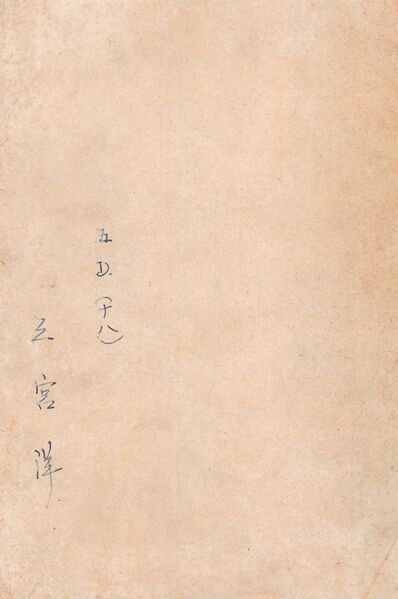 五D(十八)
三宮洋